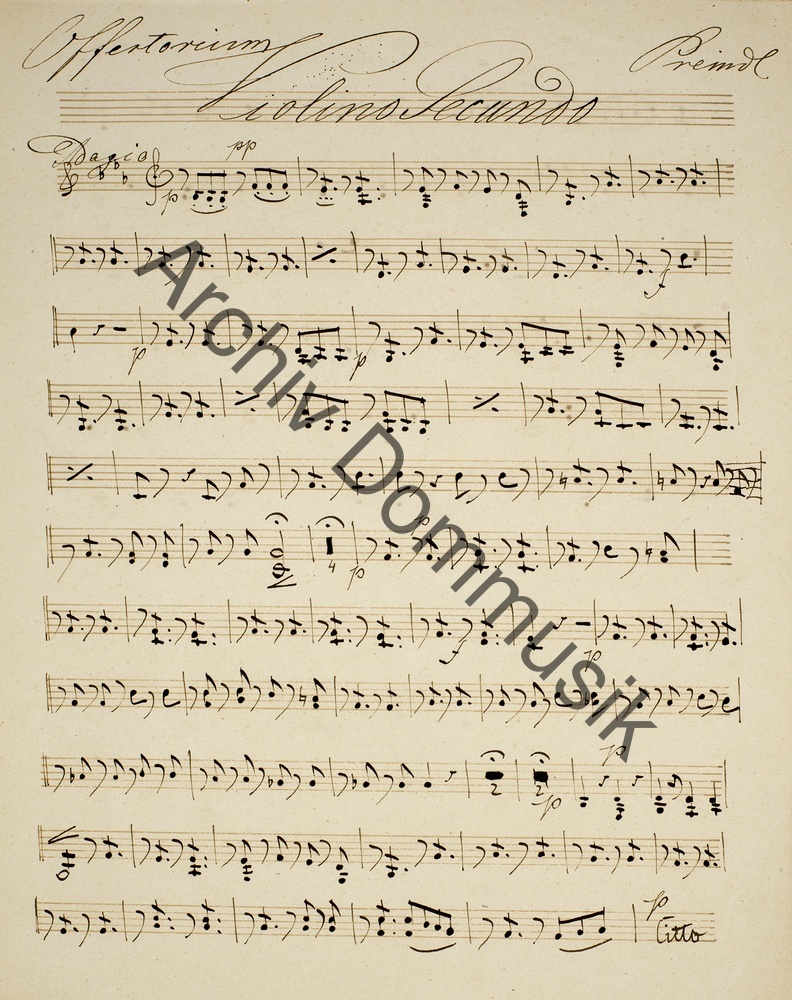 Offertorium Preindl
Violino Secundo
Adagio pp
p
f
p p
p
4 p
f p
p
2 2 p
p
Citto
Archiv Dommusik